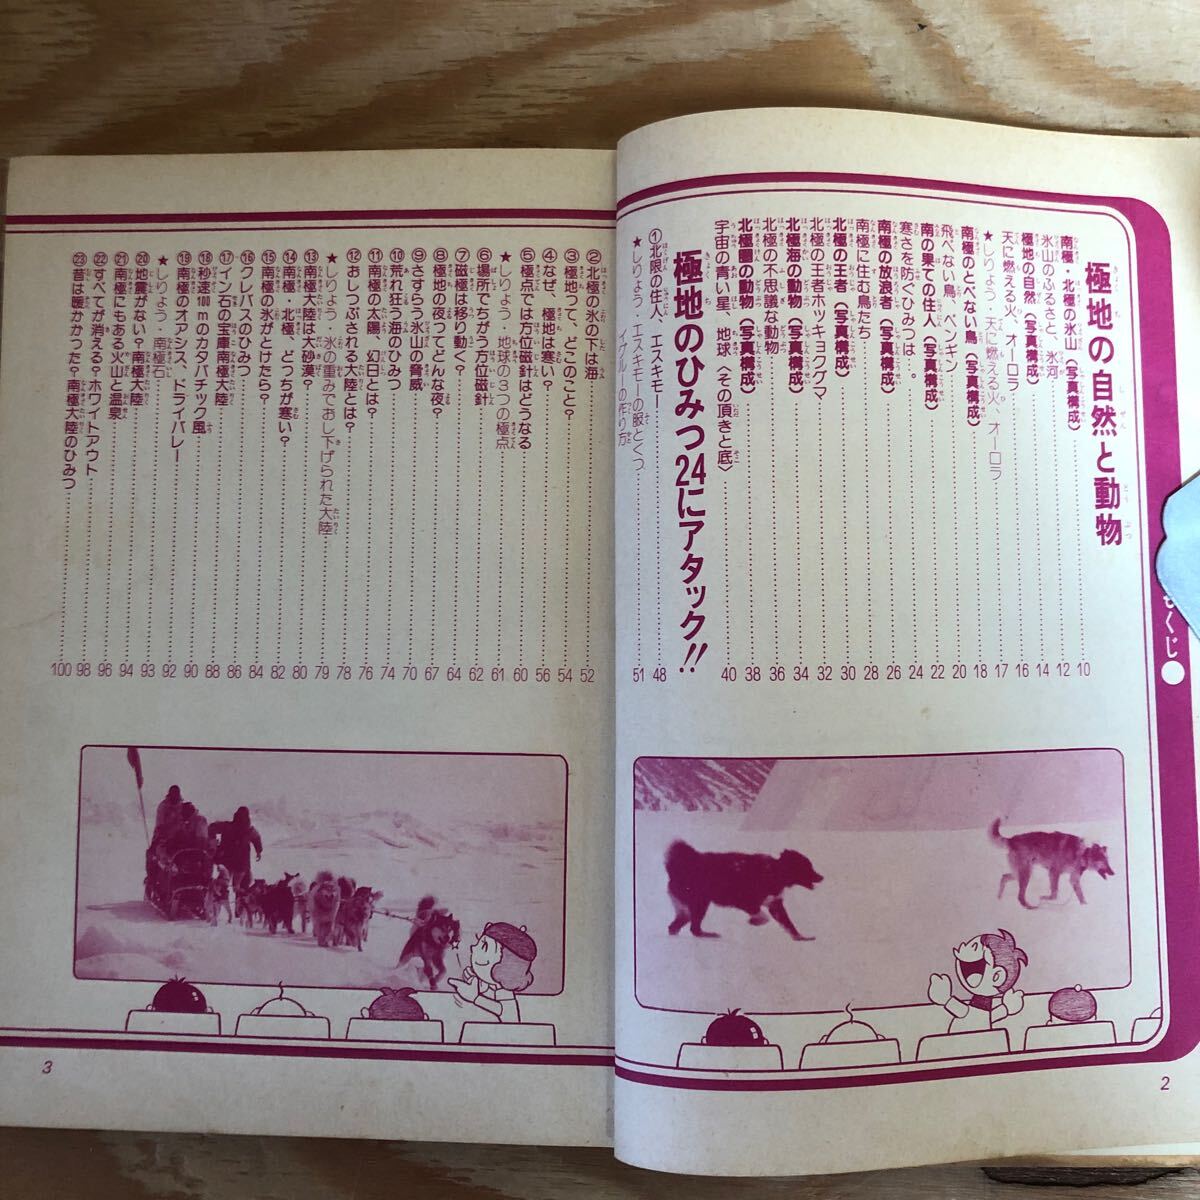 もくじ
極地の自然と動物
南極・北極の氷山(写真構成)……10
氷山のふるさと、氷河……12
極地の自然(写真構成)……14
天に燃える火、オーロラ……16
★しりょう・天に燃える火、オーロラ……17
南極のとべない鳥(写真構成)……18
飛べない鳥、ペンギン……20
南の果ての住人(写真構成)……22
寒さを防ぐひみつは。……24
南極の放浪者(写真構成)……26
南極に住む鳥たち……28
北極の王者(写真構成)……30
北極の王者ホッキョクグマ……32
北極海の動物(写真構成)……34
北極の不思議な動物……36
北極圏の動物(写真構成)……38
宇宙の青い星、地球〈その頂きと底〉……40
極地のひみつ24にアタック!!
①北限の住人、エスキモー……48
★しりょう・エスキモーの服とくつ
イグルーの作り方……51
2
②北極の氷の下は海……52
③極地って、どこのこと?……54
④なぜ、極地は寒い?……56
⑤極点では方位磁針はどうなる……60
★しりょう・地球の3つの極点……61
⑥場所でちがう方位磁針……62
⑦磁極は移り動く?……64
⑧極地の夜ってどんな夜?……67
⑨さすらう氷山の脅威……70
⑩荒れ狂う海のひみつ……74
⑪南極の太陽、幻日とは?……76
⑫おしつぶされる大陸とは?……78
★しりょう・氷の重みでおし下げられた大陸……79
⑬南極大陸は大砂漠?……80
⑭南極・北極、どっちが寒い?……80
⑮南極の氷がとけたら?……82
⑯クレバスのひみつ……84
⑰イン石の宝庫南極大陸……86
⑱秒速100mのカタバチック風……88
⑲南極のオアシス、ドライバレー……90
★しりょう・南極石……92
⑳地震がない?南極大陸……93
㉑南極にもある火山と温泉……94
㉒すべてが消える?ホワイトアウト……96
㉓昔は暖かかった?南極大陸のひみつ……98
100
3